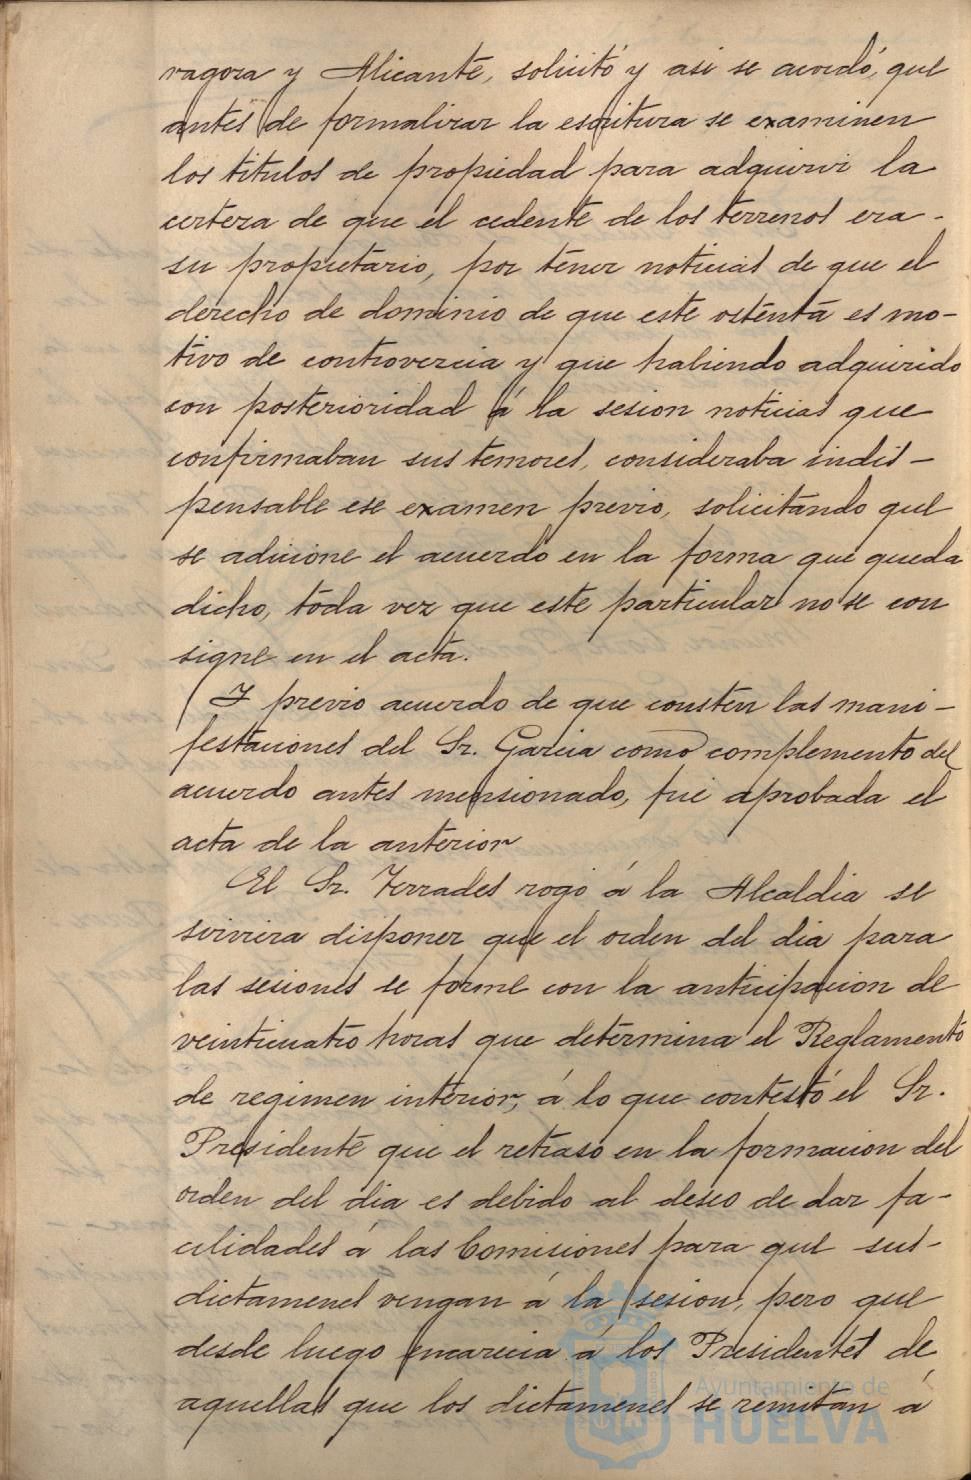 ragoza y Alicante, solicitó y asi se acordó, que
antes de formalizar la escritura se examinen
los titulos de propiedad para adquirir la
certeza de que el cedente de los terrenos era
su propietario, por tener noticias de que el
derecho de dominio de que este ostenta es mo-
tivo de controvercia y que habiendo adquirido
con posterioridad á la sesion noticias que
confirmaban sus temores, consideraba indis-
pensable ese examen previo, solicitando que
se adicione el acuerdo en la forma que queda
dicho, toda vez que este particular no se con
signe en el acta.
Y previo acuerdo de que consten las mani-
festaciones del Sr. Garcia como complemento del
acuerdo antes mensionado, fué aprobada el
acta de la anterior
El Sr. Terrades rogó á la Alcaldia se
sirviera disponer que el orden del dia para
las sesiones se forme con la anticipacion de
veinticuatro horas que determina el Reglamento
de regimen interior, á lo que contestó el Sr.
Presidente que el retraso en la formacion del
orden del dia es debido al deseo de dar fa-
cilidades á las Comisiones para que sus-
dictamenes vengan á la sesion, pero que
desde luego encarecia á los Presidentes de
aquellas que los dictamenes se remitan á
Ayuntamiento de
HUELVA